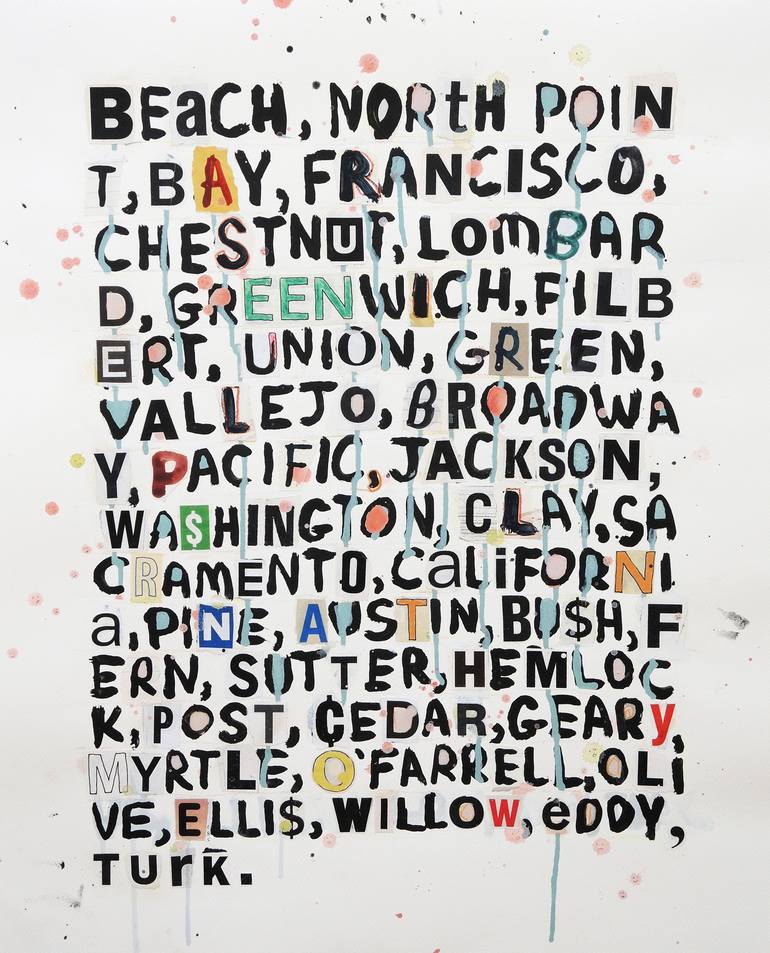 BEaCH, NORtH POIN
T, BAY, FRANCISCO,
CHESTNUT, LomBAR
D, GREENWICH, FILB
ERT, UNION, GREEN,
VALLEJO, BROADWA
Y, PACIFIC, JACKSON,
WA$HINGTON, CLAY, SA
CRAMENTO, CaLiFORNI
a, PINE, AUSTIN, BU$H, F
ERN, SUTTER, HEMLOC
K, POST, ¢EDAR, GEARy,
MYRTLE, O'FARRELL, OLi
VE, ELLI$, WILLOw, eDDY,
TURK.